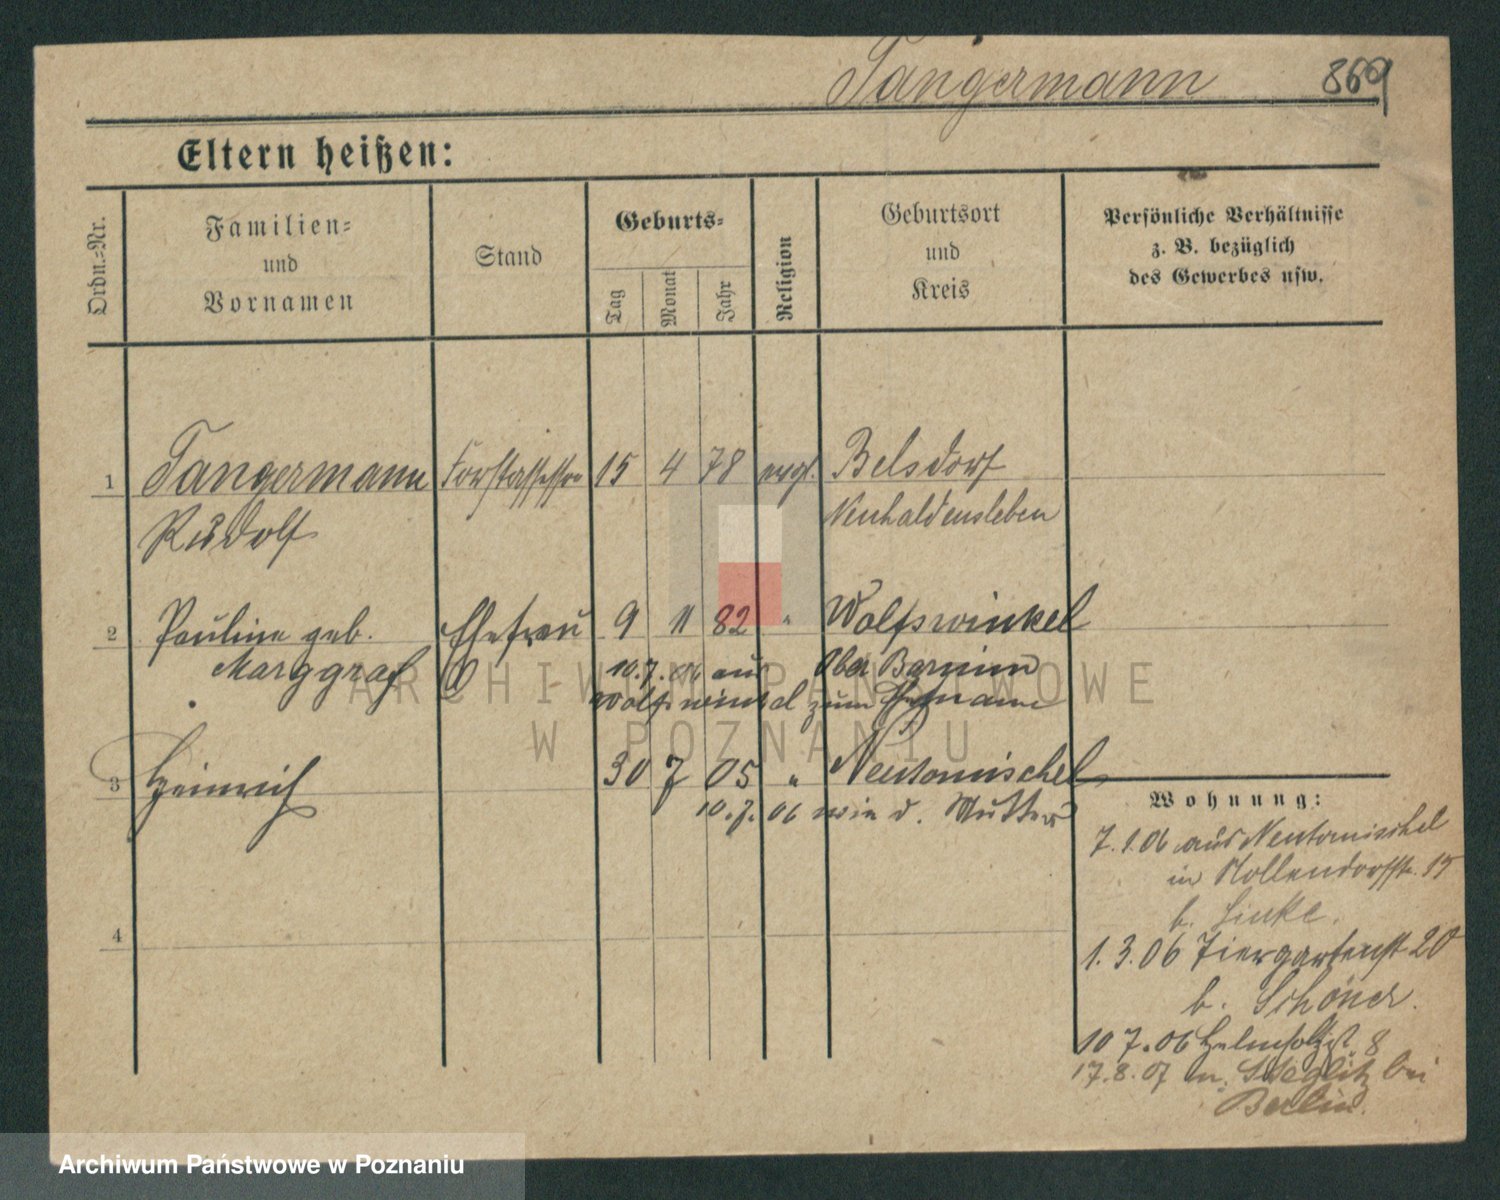 Tangermann 869
Eltern heißen:
Ordn.-Nr.
Familien-
und
Vornamen
Stand
Geburts-
Tag
Monat
Jahr
Religion
Geburtsort
und
Kreis
Persönliche Verhältnisse
z. B. bezüglich
des Gewerbes usw.
1 Tangermann Forstassessor 15 4 78 evgl. Belsdorf
Rudolf Neuhaldensleben
2 Pauline geb. Ehefrau 9 11 82 " Wolfswinkel
Marggraf 10.7.06 aus Ober Barnim
Wolfswinkel zum Ehemann
3 Heinrich 30 7 05 " Neutomischel
10.7.06 wie d. Mutter
4
Wohnung:
7.1.06 aus Neutomischel
in Mollendorfstr. 15
b. Linke.
1.3.06 Tiergartenst 20
b. Schöner.
10 7.06 Helmholtzst. 8
17.8.07 n. Steglitz bei
Berlin.
ARCHIWUM PAŃSTWOWE
W POZNANIU
Archiwum Państwowe w Poznaniu